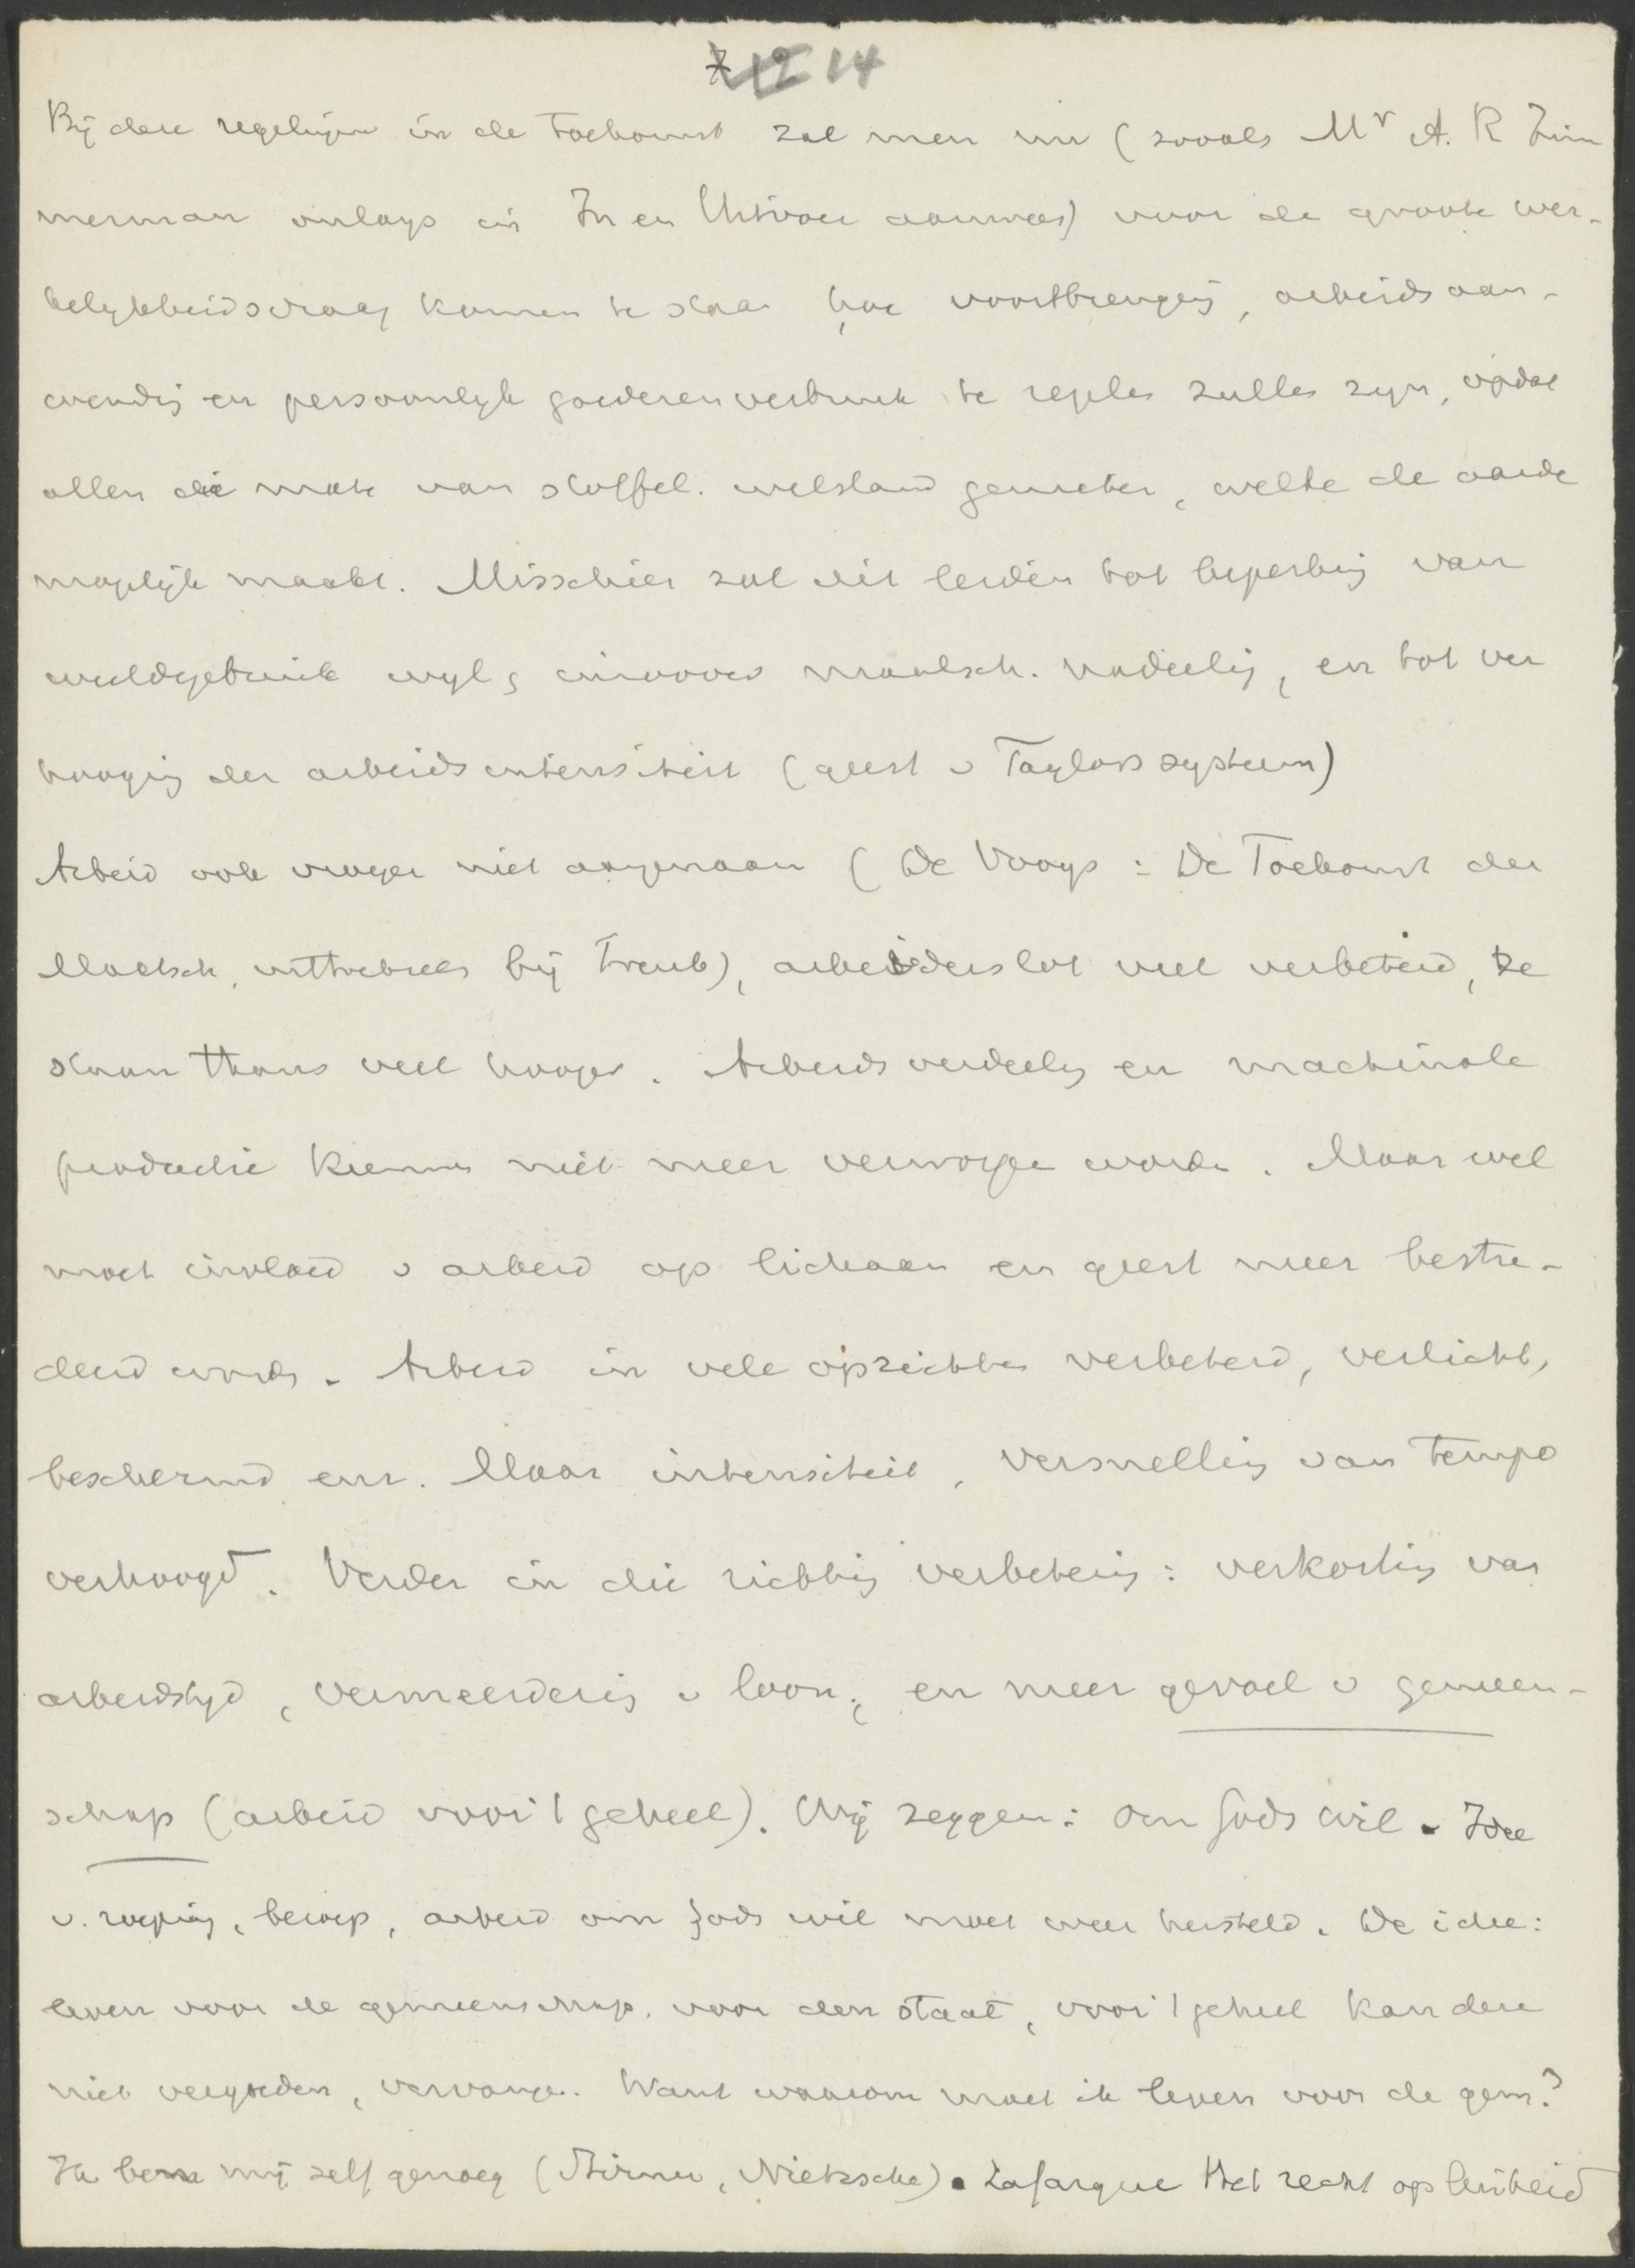 7 12 14
Bij deze regelingen in de Toekomst zal men nu (zooals Mr A. R Zim
merman onlangs in In en Uitvoer aanwees) voor de groote wer-
kelykheidsvraag komen te staan hoe voortbrenging, arbeidsaan-
wending en persoonlyk goederenverbruik te regelen zullen zyn, opdat
allen die mate van stoffel. welstand genieten, welke de aarde
mogelijk maakt. Misschien zal dit leiden tot beperking van
weeldegebruik wyl maatsch. nadeelig, en tot ver
hooging der arbeidsintensiteit (geest v Taylorsysteem)
Arbeid ook vroeger niet aangenaam (De Vooys: De Toekomst der
Maatsch, uittreksels bij Treub), arbeiderslot veel verbeterd, ze
staan thans veel hooger. Arbeidsverdeeling en machinale
productie kunnen niet meer verworpen worden. Maar wel
moet invloed v arbeid op lichaam en geest meer bestu-
deerd worden. Arbeid in vele opzichten verbeterd, verlicht,
beschermd enz. Maar intensiteit, versnelling van tempo
verhoogd. Verder in die richting verbetering: verkorting van
arbeidstyd, vermeerdering v loon, en meer gevoel v gemeen-
schap (arbeid voor 't geheel). Wij zeggen: om Gods wil. Idee
v. roeping, beroep, arbeid om Gods wil moet weer hersteld. De idee:
leven voor de gemeenschap, voor den staat, voor 't geheel kan deze
niet vergoeden, vervangen. Want waarom moet ik leven voor de gem?
Ik ben mij zelf genoeg (Stirner, Nietzsche). Lafargue Het recht op luiheid